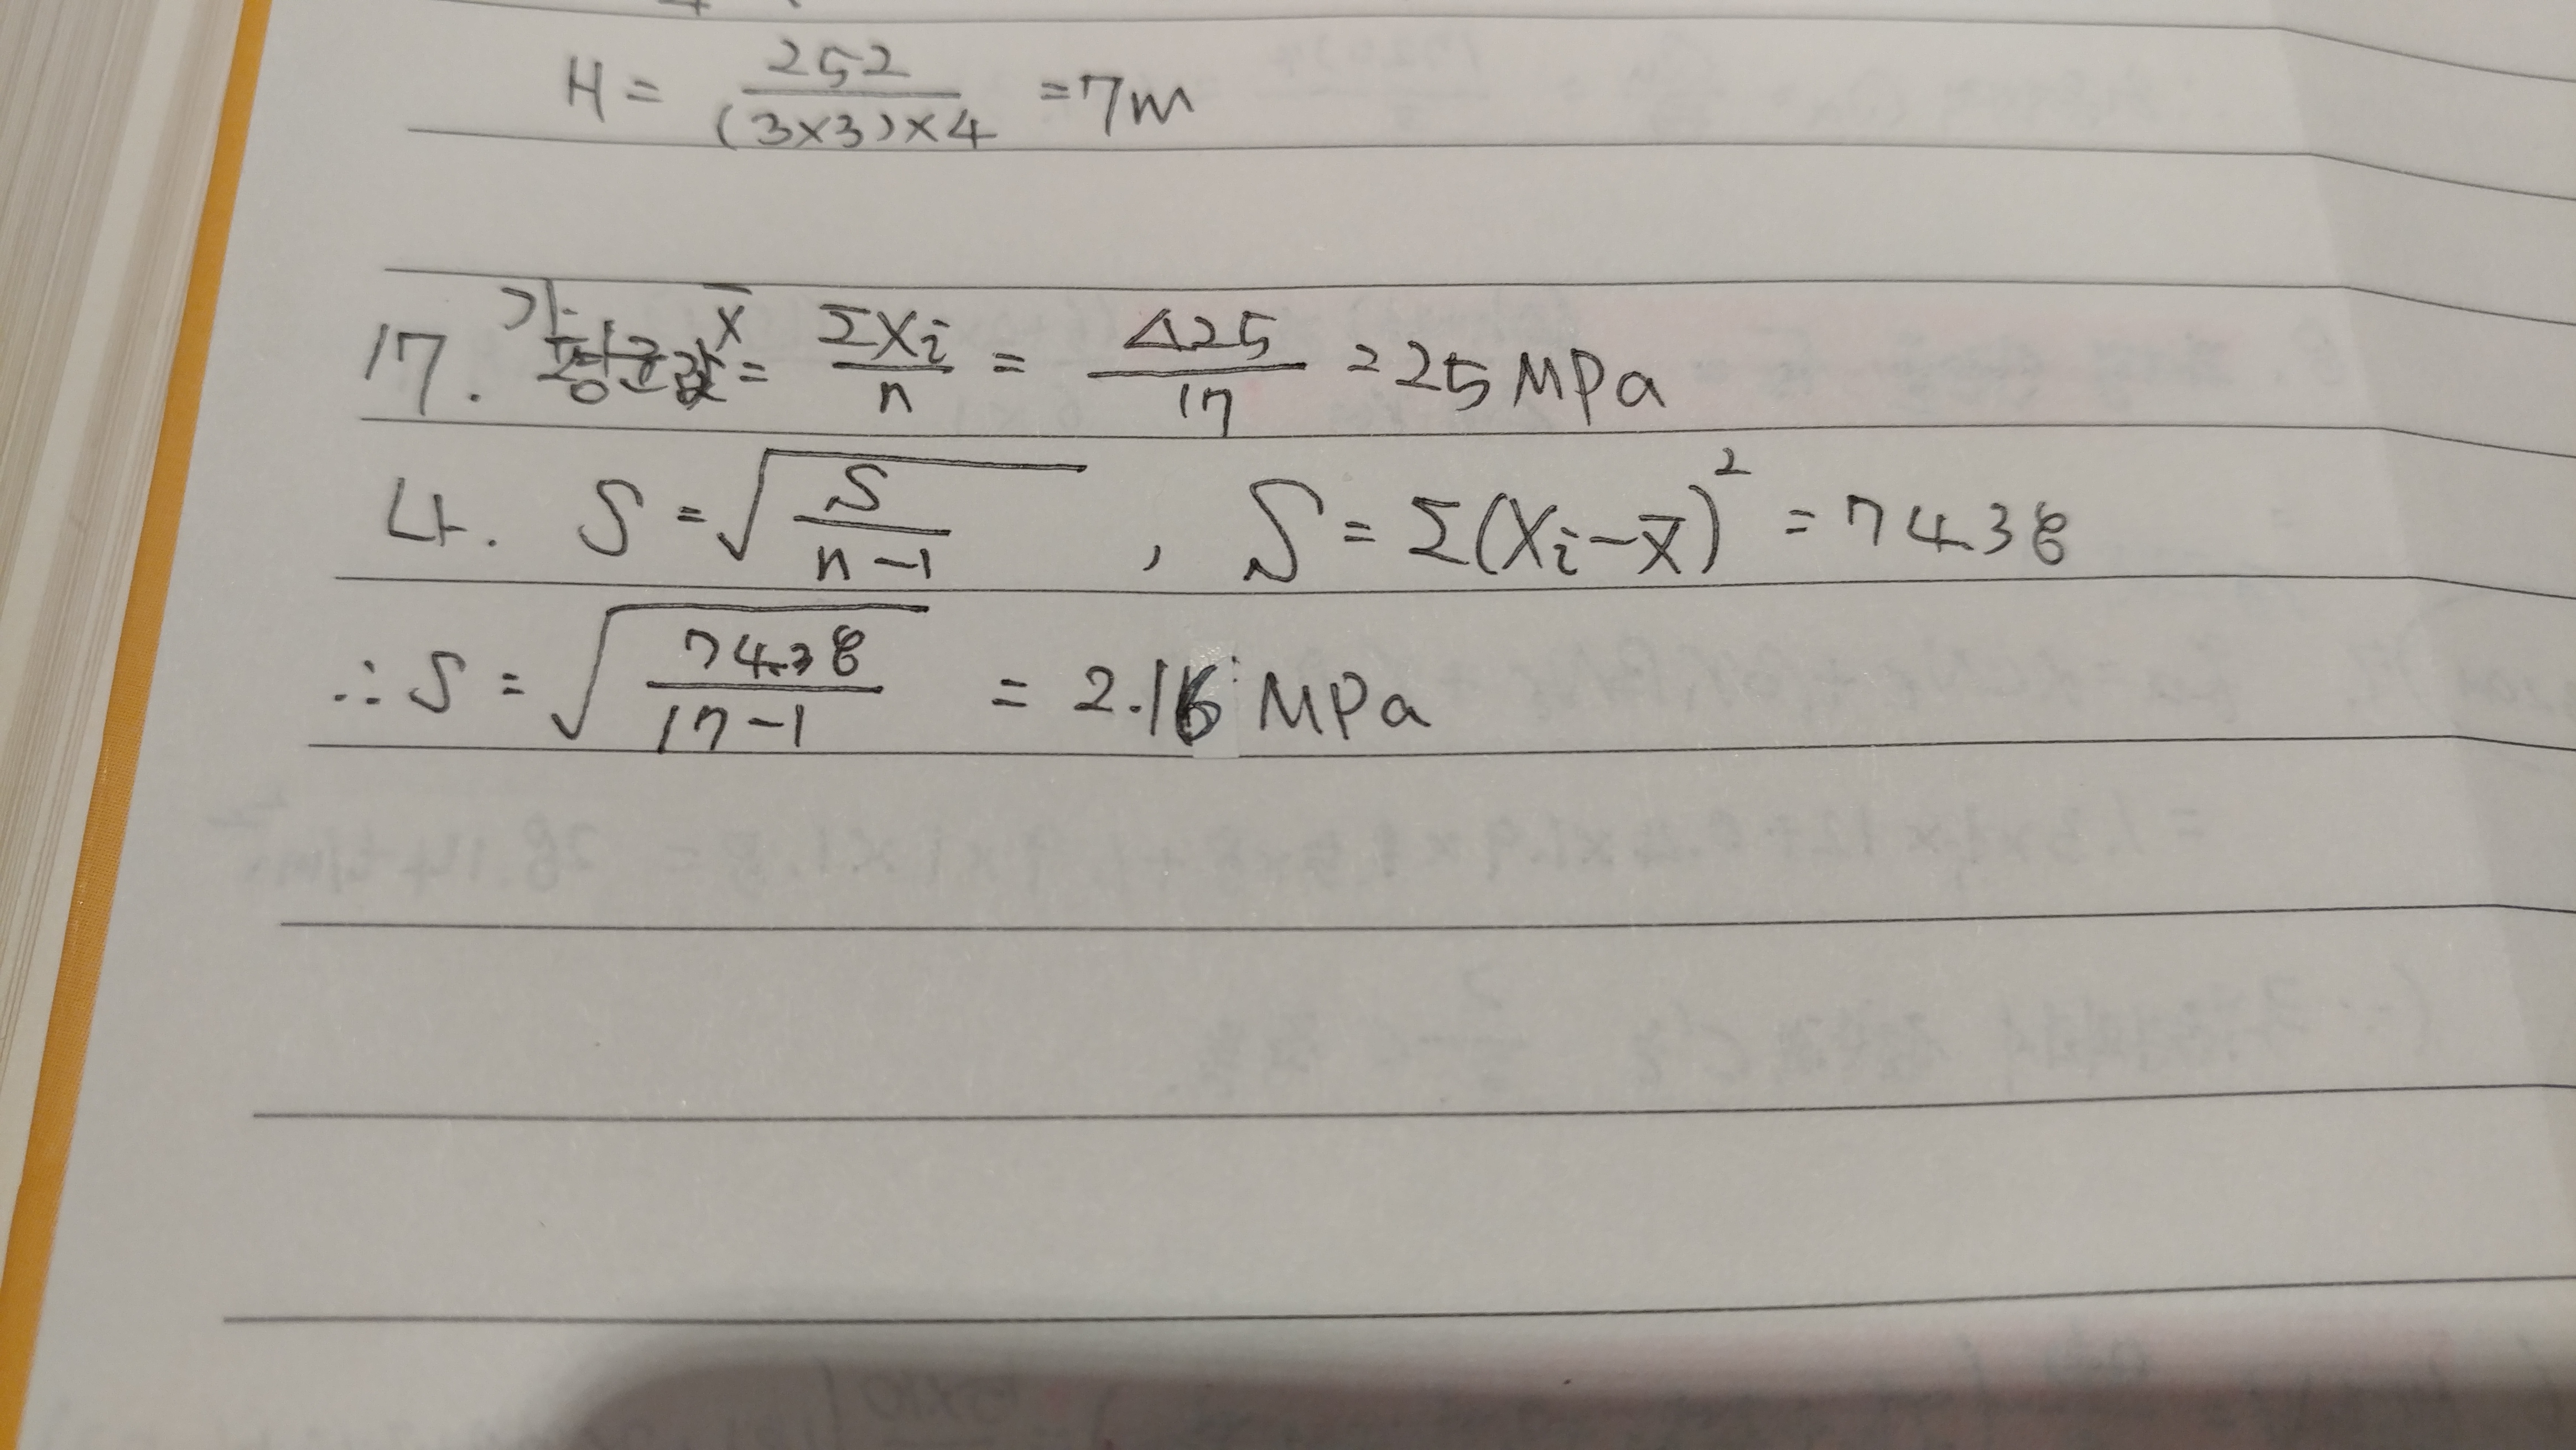 H = 252 / (3×3)×4 = 7m
17. 가. 평균값 x̄ = Σxi / n = 425 / 17 = 25 MPa
나. S = √(S / n-1) , S = Σ(xi - x̄)² = 74.38
∴ S = √(74.38 / 17-1) = 2.16 MPa